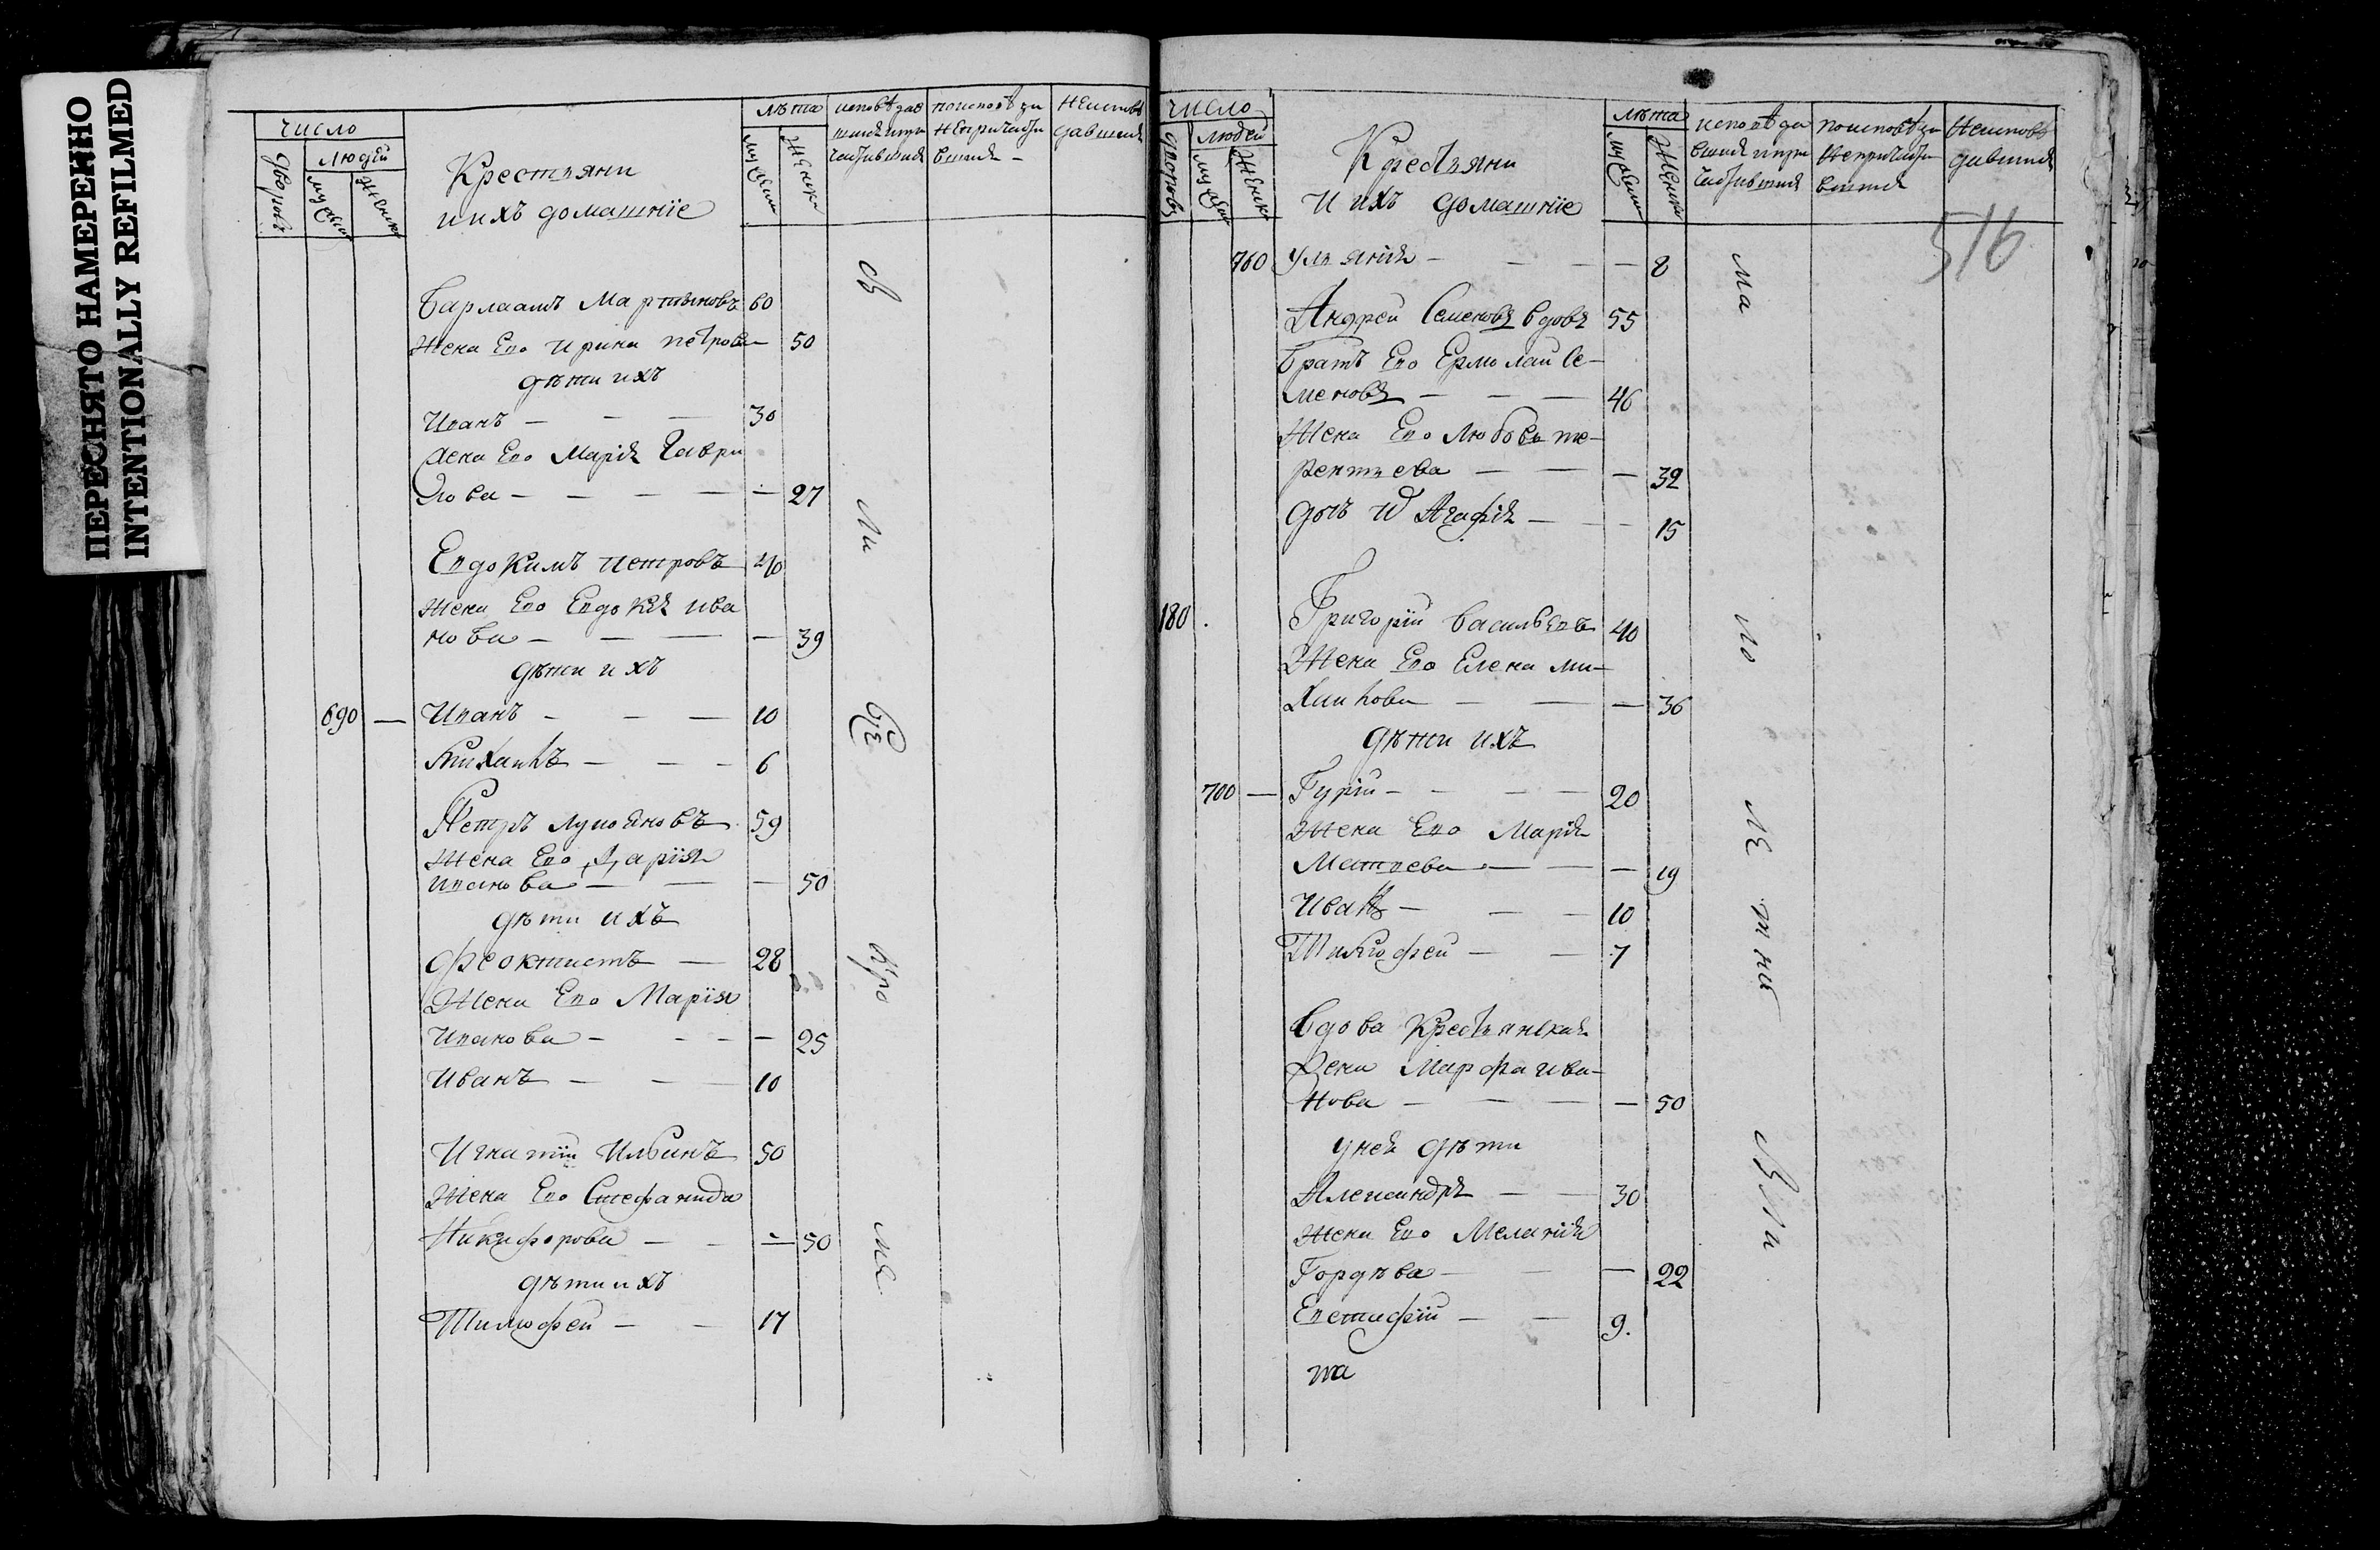 ПЕРЕСНЯТО НАМЕРЕННО
INTENTIONALLY REFILMED
число
людей
дворовъ
мужеска
женска
Крестьяни
и ихъ домашнїе
лѣта
мужеска
женска
исповѣдав
шихся и при
частившихся
по исповѣди
не причасти
вшихся
не исповѣ
давшихся
Варлаамъ Мартыновъ 60
Жена Его Ирина петрова 50
дѣти ихъ
Иванъ — — — 30
Жена Его Марїя Гаври
лова — — — — — 27
Евдокимъ петровъ 40
жена Его Евдокїя ива
нова — — — — 39
дѣти ихъ
690 — Иванъ — — — 10
Михаилъ — — — 6
Петръ лукояновъ 59
Жена Его Дарїя
иванова — — — 50
дѣти ихъ
феоктистъ — 28
Жена Его Марїя
Иванова — — — — 25
Иванъ — — — 10
Игнатїй Ильинъ 50
Жена Его Стефанида
Никифорова — — — 50
дѣти ихъ
Тимофей — — 17
число
людей
дворовъ
мужеска
женска
Крестьяни
и ихъ домашнїе
лѣта
мужеска
женска
исповѣда
вшихся и при
частившихся
по исповѣди
не причасти
вшихся
не исповѣ
давшихся
516
760 Ульянїя — — — — 8
Андрей Семеновъ вдовъ 55
Братъ Его Ермолай Се-
меновъ — — — 46
Жена Его Любовь те-
рентьева — — — 32
дочь Агафїя — — — 15
180 Григорїй васильевъ 40
Жена Его Елена ми-
хаилова — — — 36
дѣти ихъ
700 — Гурїй — — — — 20
Жена Его Марїя
Матвева — — — 19
Иванъ — — — 10
Тимофей — — 7
Вдова Крестьянская
жена Марфа ива-
нова — — — — 50
у нея дѣти
Александръ — — 30
жена Его Меланїя
Гордѣва — — — 22
Евстафїй — — 9.
та